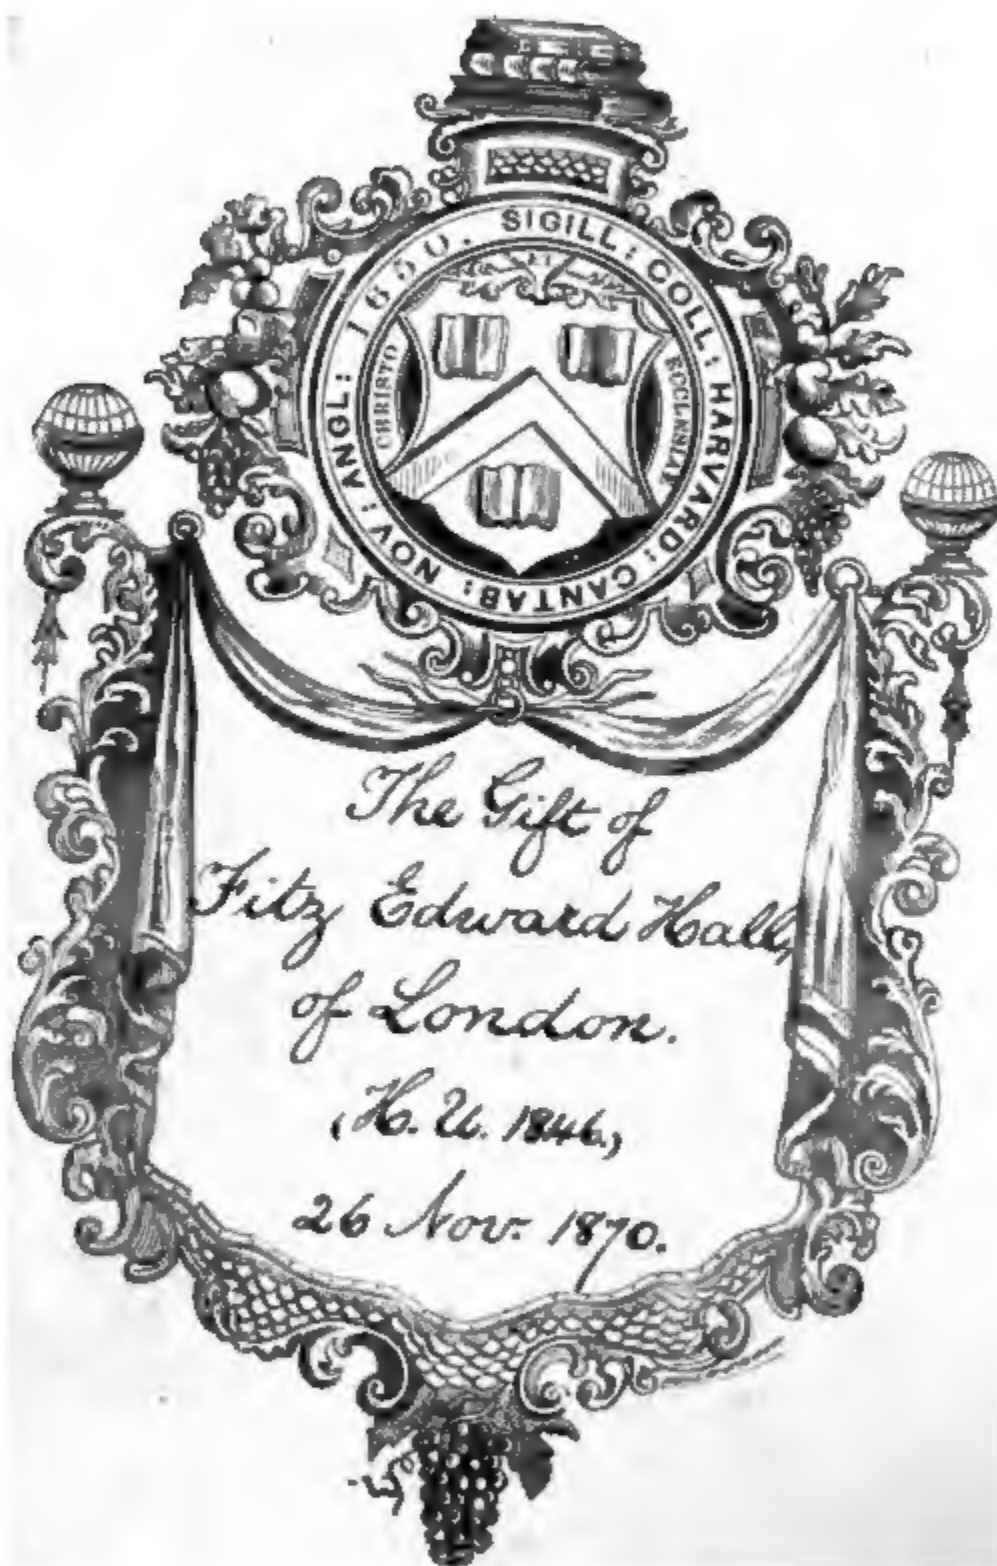 SIGILL: COLL: HARVARD: CANTAB: NOV: ANGL: 1650.
CHRISTO
ECCLESIAE
The Gift of
Fitz Edward Hall,
of London.
(H. U. 1846.)
26 Nov. 1870.